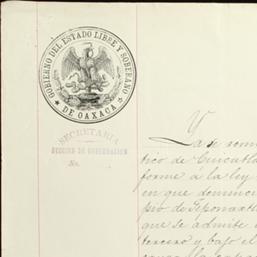 GOBIERNO DEL ESTADO LIBRE Y SOBERANO
DE OAXACA
SECRETARIA
SECCION DE GOBERNACION
No.
Ya se
tico de Cuicatl
forme á la ley
en que
pio de Teponaxtl
que se admite
tercero y bajo el